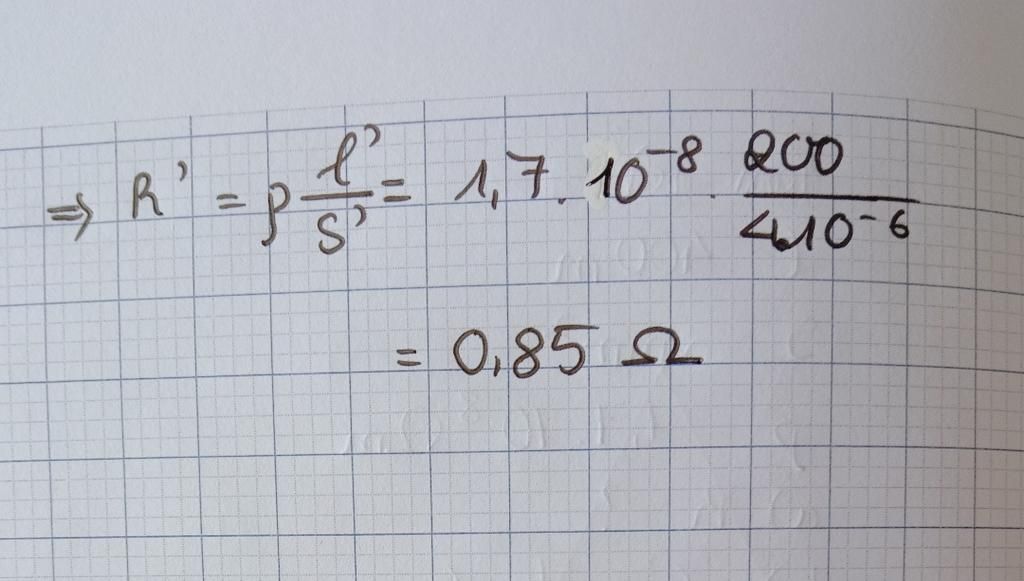 ⇒ R' = ρ l'/S' = 1,7 . 10⁻⁸ . 200/4.10⁻⁶
= 0,85 Ω